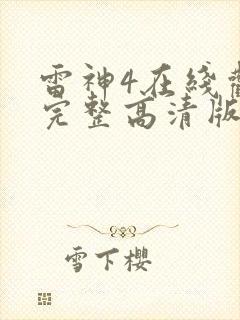 雷神4在线
完整高清版
雪下樱